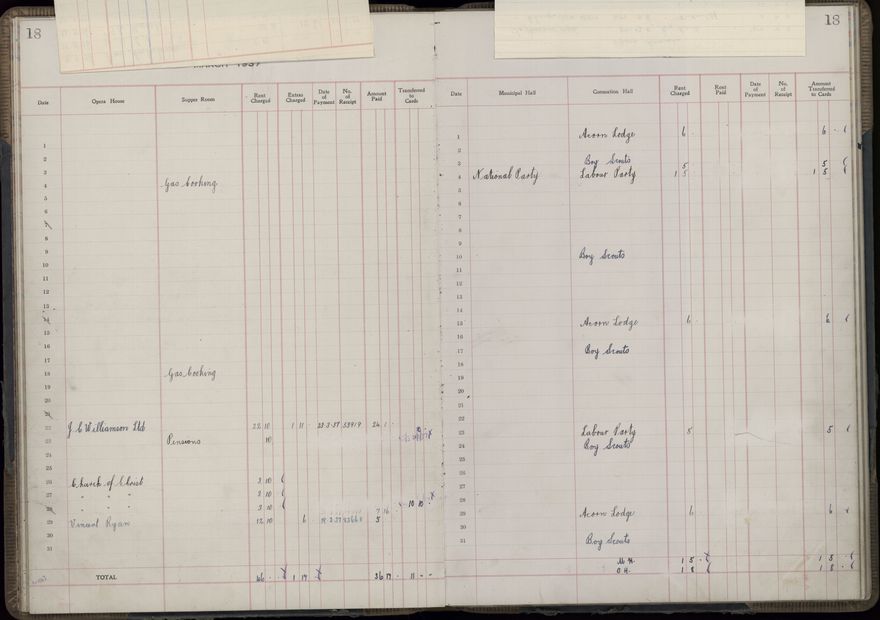 18
MARCH 1937
Date Opera House Supper Room Rent Charged Extras Charged Date of Payment No. of Receipt Amount Paid Transferred to Cards
1
2
3
4 Gas Cooking
5
6
7
8
9
10
11
12
13
14
15
16
17
18 Gas Cooking
19
20
21
22 J. C Williamson Ltd 22 10 1 11 23.3.37 53919 24 1
23 Pensions 10
24
25
26 Church of Christ 3 10
27 " " " 3 10
28 " " " 3 10 10 10
29 Vincent Ryan 12 10 6
30
31
TOTAL 46 1 17 36 17 11 - -
18
Date Municipal Hall Coronation Hall Rent Charged Rent Paid Date of Payment No. of Receipt Amount Transferred to Cards
1 Acorn Lodge 6 6
2
3 Boy Scouts 5 5
4 National Party Labour Party 1 5 1 5
5
6
7
8
9
10 Boy Scouts
11
12
13
14
15 Acorn Lodge 6 6
16
17 Boy Scouts
18
19
20
21
22
23 Labour Party 5 5
24 Boy Scouts
25
26
27
28
29 Acorn Lodge 6 6
30
31 Boy Scouts
M.H. 1 5 1 5
C.H. 1 8 1 8